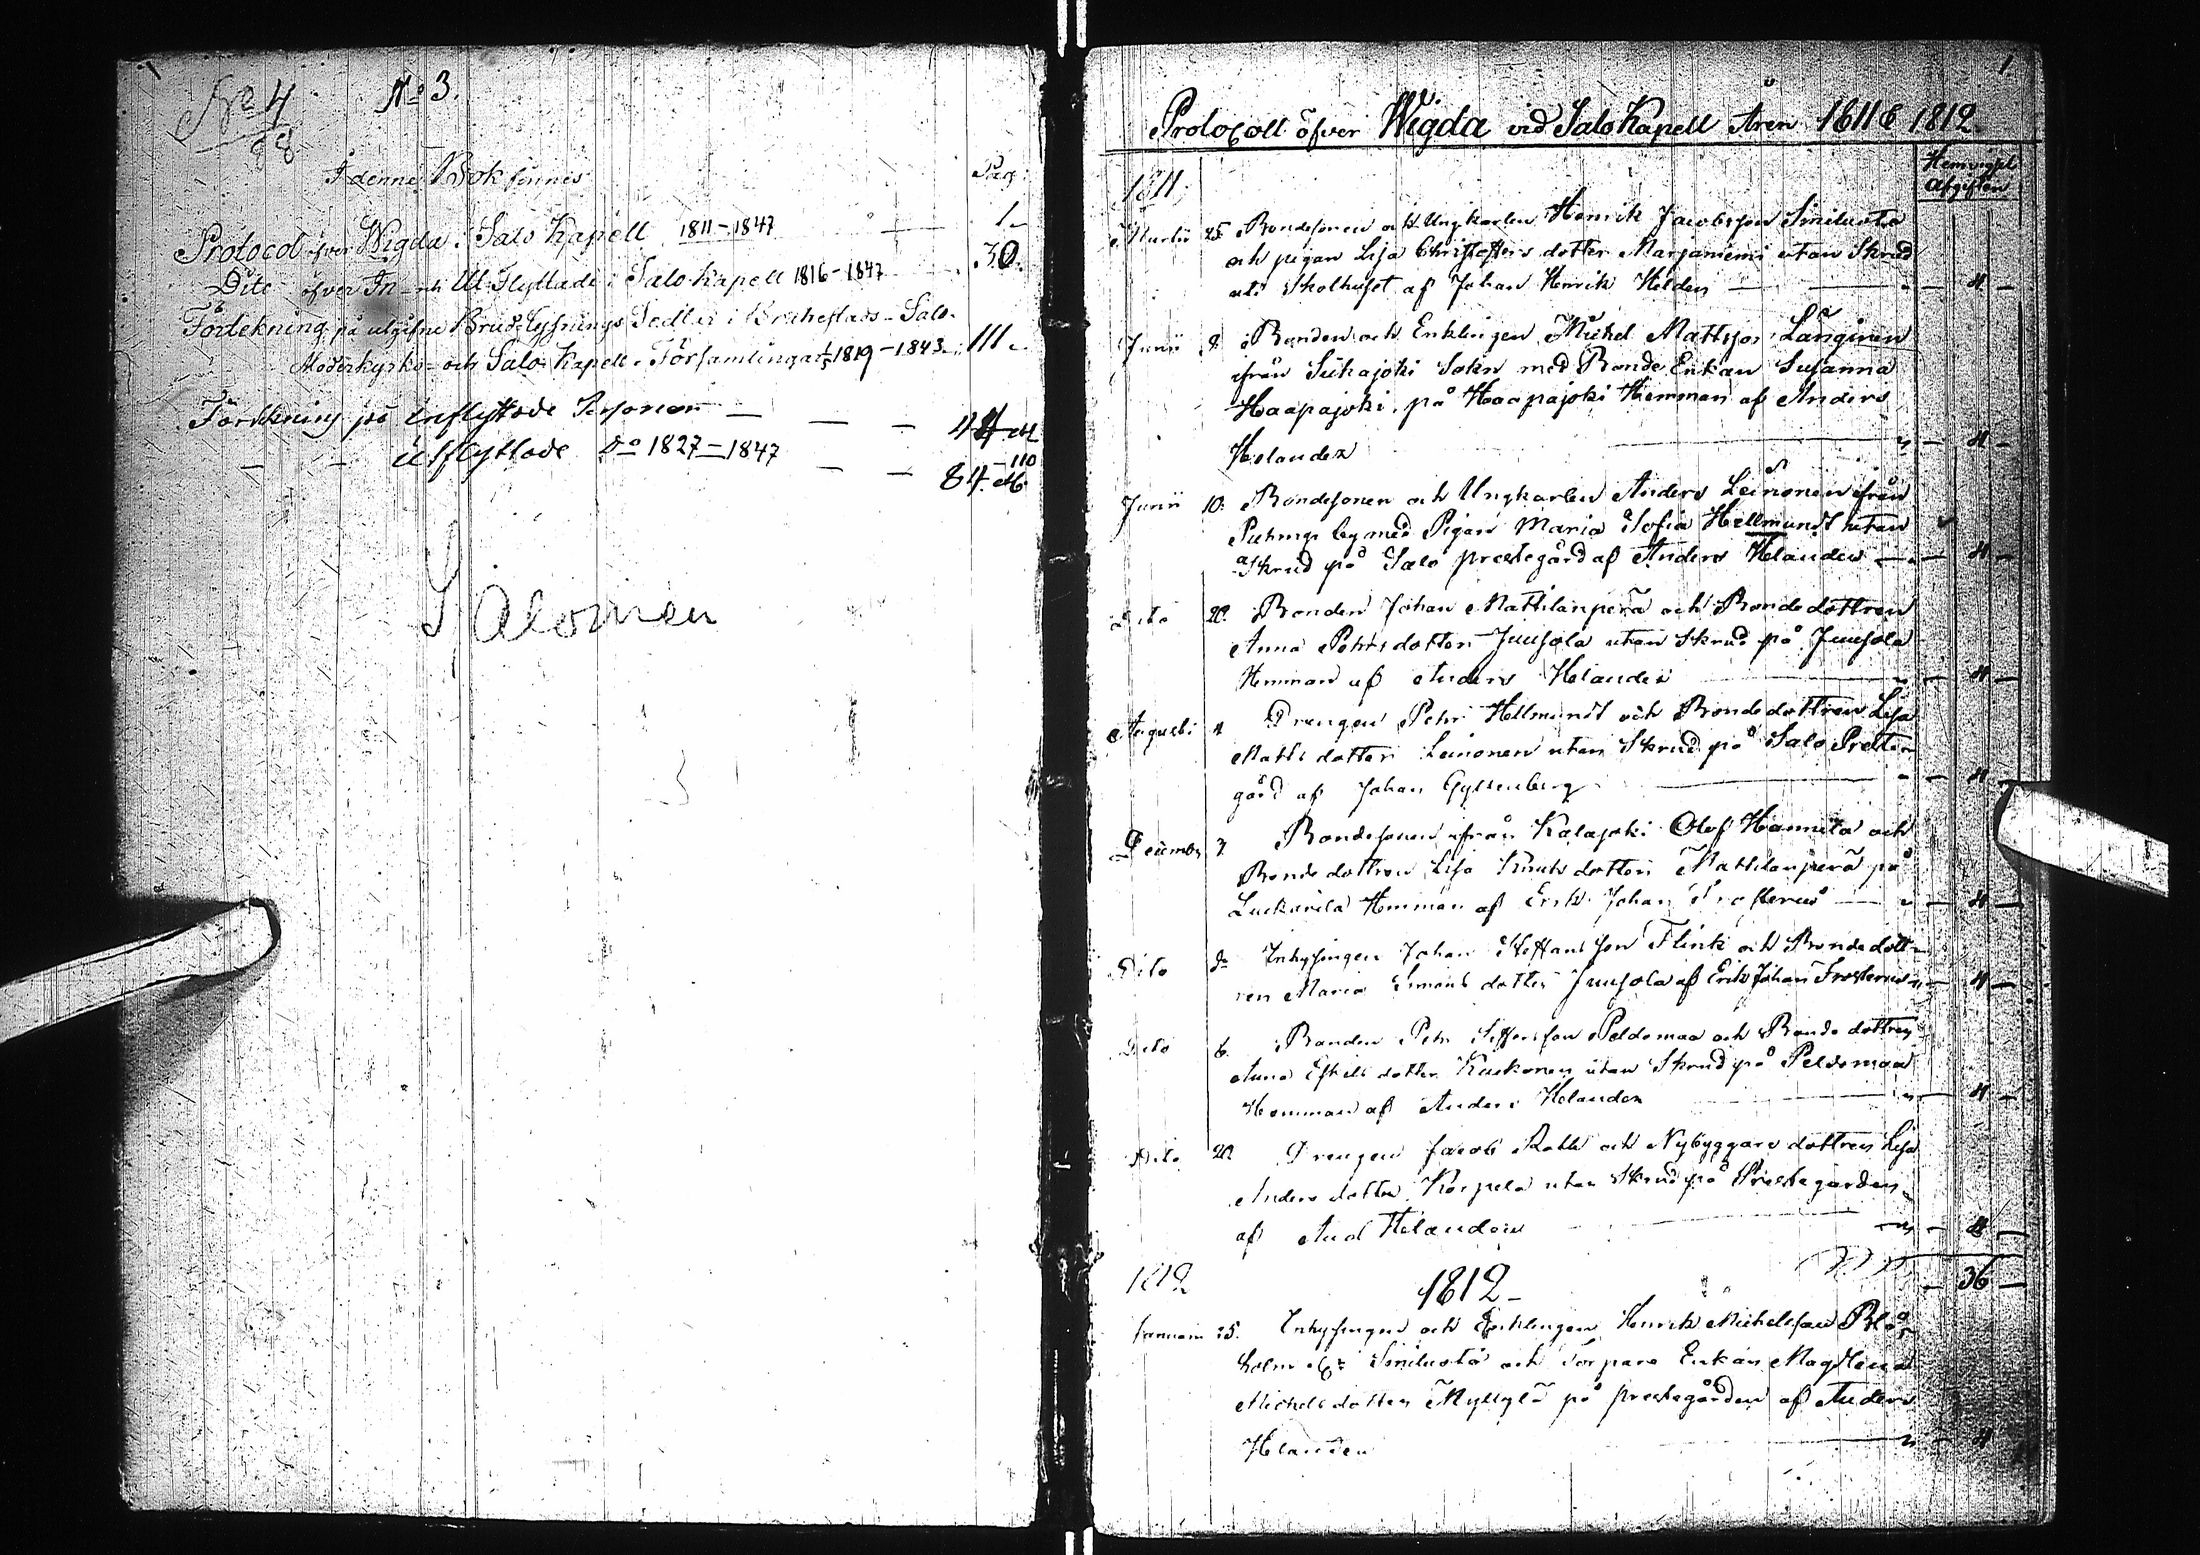 No 4
No 3.
I denne Bok finnes
Pag:
Protocol öfver Wigda i Salo Kapell 1811-1847 1
Dito öfver In- och Ut-Flyttade i Salo Kapell 1816-1847 30.
Förtekning på utgifne Brud-Lysnings Sedlar i Brahestads-Salo-
Moderkyrko- och Salo Kapell-Församlingar 1819-1843 111
Förtekning på inflyttade Personer
utflyttade Do 1827-1847 - 110
84
Saloinen
1.
Protocoll öfver Wigda vid Salo Kapell Åren 1811 & 1812.
Hemmagel
afgiften
1811
Martii 25. Bondesonen och Ungkarlen Henrik Jacobsson Smiluoto
och pigan Lisa Christoffers dotter Marjaniemi utan Skrud
uti Skolhuset af Johan Henrik Helden 4
Junii 9. Bonden och Enklingen Michel Mattsson Länginen
ifrån Siikajoki Sokn med Bonde Enkan Susanna
Haapajoki, på Haapajoki Hemman af Anders
Helander 4
Junii 10. Bondesonen och Ungkarlen Anders Leinonen ifrån
by med Pigan Maria Sofia Hellmundt utan
Skrud på Salo prestegård af Anders Helander 4
Dito 20. Bonden Johan Mattilanperä och Bondedottren
Anna Pehrsdotter Juusola utan Skrud på Juusola
Hemman af Anders Helander 4
Augusti 4 Drengen Pehr Hellmundt och Bondedottren Lisa
Matts dotter Leinonen utan Skrud på Salo Preste
gård af Johan Gyllenberg 4
December 3. Bondesonen ifrån Kalajoki Olof Hannila och
Bondedottren Lisa Knuts dotter Mattilanperä på
Luckarila Hemman af Erik Johan Frosterus 4
Dito do Inhysingen Johan Steffansson Flink och Bondedott-
ren Maria Simons dotter Juusola af Erik Johan Frosterus 4
Dito 6. Bonden Pehr Peldomaa och Bondedottren
Anna Eskils dotter Kuckonen utan Skrud på Peldomaa
Hemman af Anders Helander 4
Dito 26. Drengen Jacob och Nybyggare dottren Lisa
Anders dotter Korpela utan Skrud på Prestegården
af And Helander 4
36
1812 1812
Januarii 25. Inhysingen och Enklingen Henrik Michelsson Blå-
holm Smiluoto och Torpare Enkan Magdlena
Michels dotter Myllylä på prestegården af Anders
Helander 4